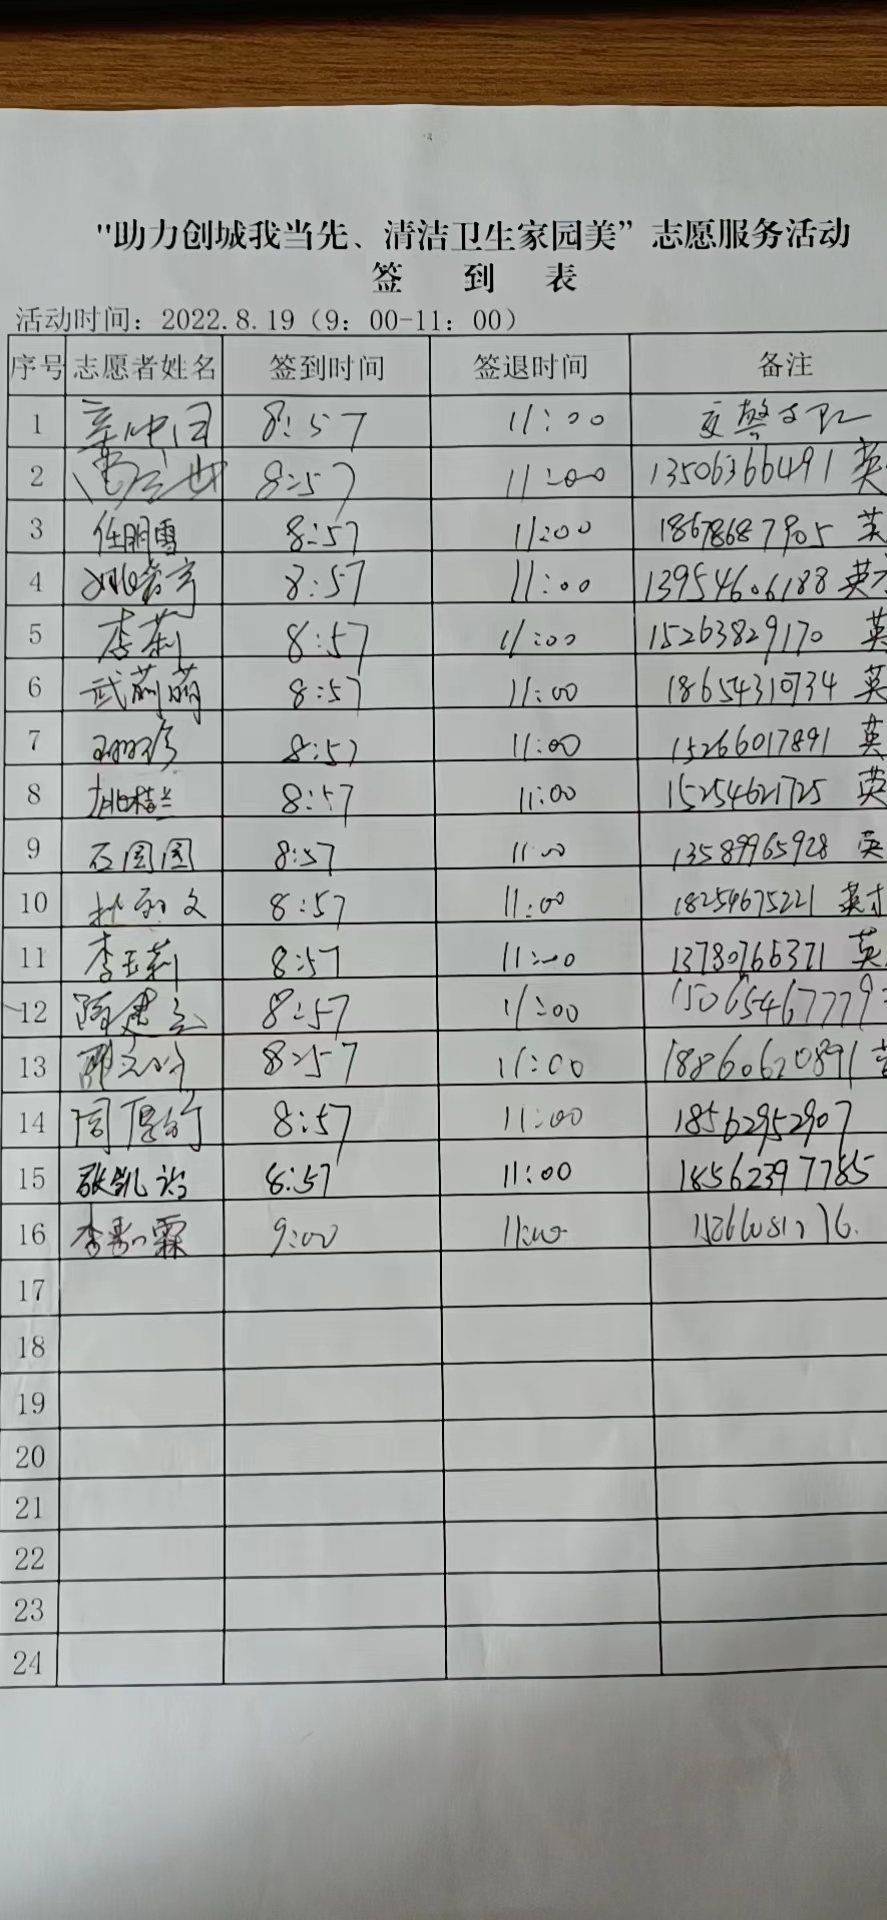 "助力创城我当先、清洁卫生家园美”志愿服务活动
签 到 表
活动时间：2022.8.19（9：00-11：00）
序号 志愿者姓名 签到时间 签退时间 备注
1 8:57 11:00 交警支队
2 8:57 11:00 13506366491 英
3 任明雪 8:57 11:00 18678687905 英
4 8:57 11:00 13954606188 英才
5 李莉 8:57 11:00 15263829170 英
6 武萌 8:57 11:00 18654310734 英
7 8:57 11:00 15266017891 英
8 姚桂兰 8:57 11:00 15254621725 英
9 石圆圆 8:57 11:00 13589965928 英
10 文 8:57 11:00 18254675221 英才
11 李玉莉 8:57 11:00 13780766371 英
12 陈建 8:57 11:00 15065467779
13 8:57 11:00 18860620891
14 周 8:57 11:00 18562952907
15 张凯 8:57 11:00 18562397785
16 李 霖 9:00 11:00
17
18
19
20
21
22
23
24